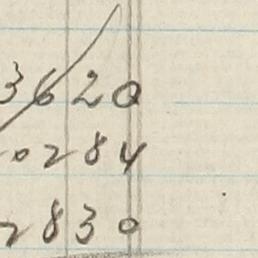 3620
0284
2830